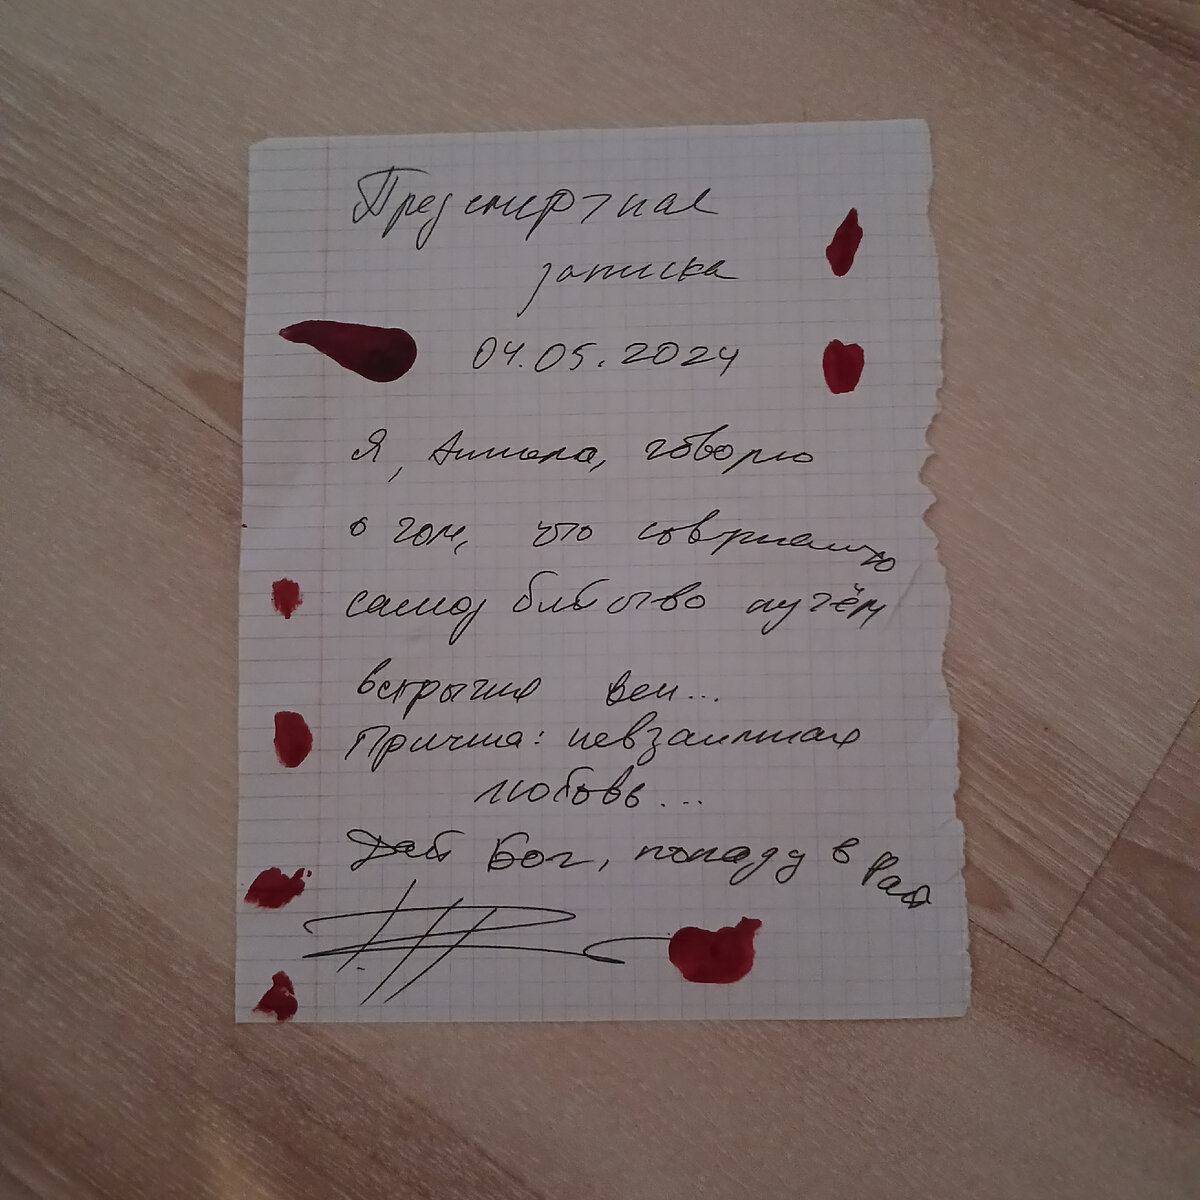 Предсмертная
записка
04.05.2024
Я, Анжела, говорю
о том, что совершаю
самоубийство путём
вскрытия вен...
Причина: невзаимная
любовь...
Дай Бог, попаду в Рай